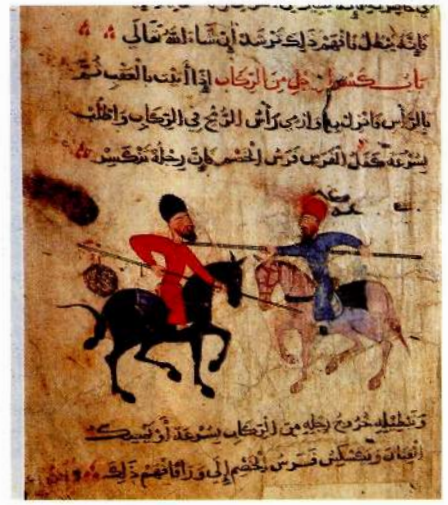 فإنه يبطل فافهم ذلك ترشد إن شاء الله تعالى
باب كسر رجل من الركاب إذا أتيت بالعقب ثم
بالرأس فانزل به وارمي رأس الرمح في الركاب واطلب
بسرعة كفل الفرس فرس الخصم فإن رجله تنكسر
وتبطيله خروج رجله من الركاب بسرعة أو يمسك
العنان ويكسر فرس الخصم إلى ورا فافهم ذلك